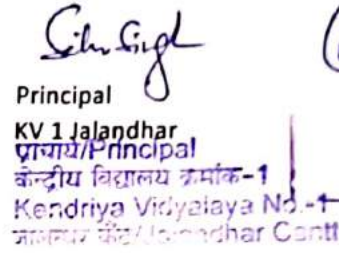 Principal
KV 1 Jalandhar
प्राचार्य/Principal
केन्द्रीय विद्यालय क्रमांक-1
Kendriya Vidyalaya No.-1
जालन्धर कैंट/Jalandhar Cantt